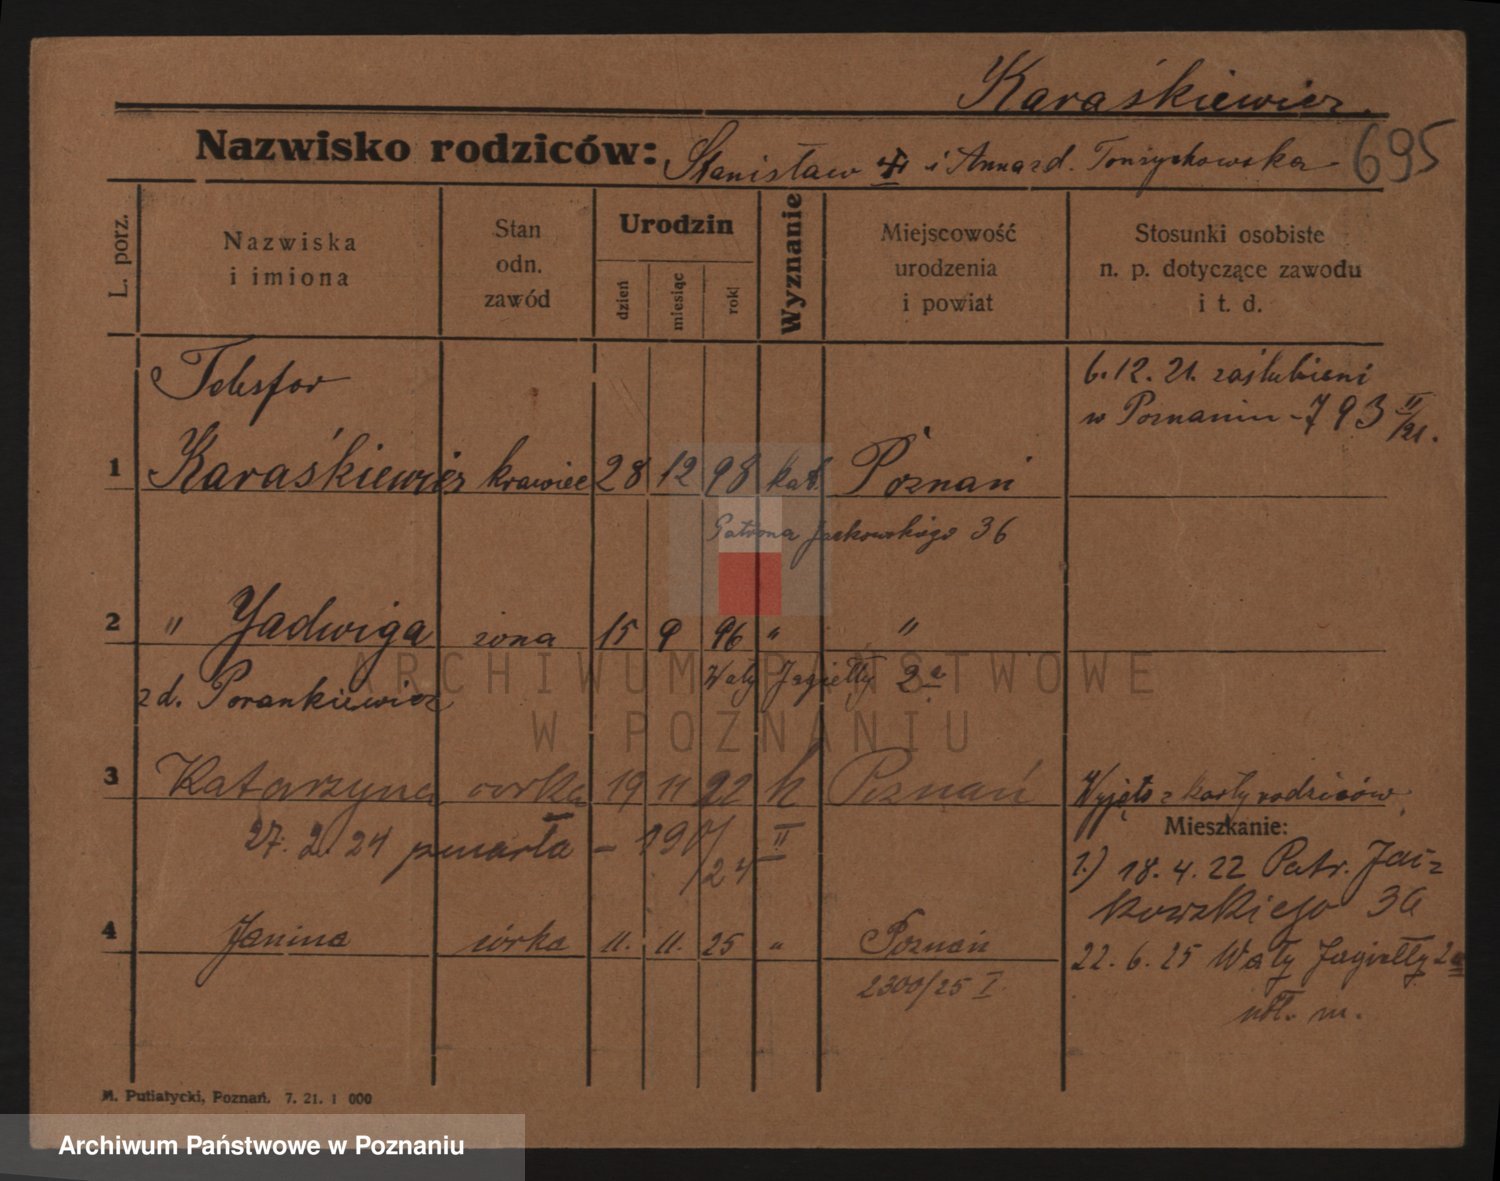 Karaśkiewicz.
Nazwisko rodziców: Stanisław i Anna z d. 695
L. porz.
Nazwiska i imiona
Stan odn. zawód
Urodzin
dzień miesiąc rok
Wyznanie
Miejscowość urodzenia i powiat
Stosunki osobiste n. p. dotyczące zawodu i t. d.
Telesfor
6.12.21. zaślubieni
w Poznaniu - 793 II/21.
1 Karaśkiewicz krawiec 28 12 98 kat. Poznań
Patrona Jackowskiego 36
2 " Jadwiga żona 15 9 96 " "
z d. Porankiewicz Wały Jagiełły 2a
3 Katarzyna córka 19 11 22 k Poznań Wyjęto z karty rodziców
27. 2. 24 zmarła - 190/24 II
Mieszkanie:
1.) 18.4.22 Patr. Jac-
kowskiego 36
4 Janina córka 11. 11. 25 " Poznań
22.6.25 Wały Jagiełły 2a
2300/25 I.
m.
M. Putiatycki, Poznań. 7. 21. 1 000
ARCHIWUM PAŃSTWOWE
W POZNANIU
Archiwum Państwowe w Poznaniu